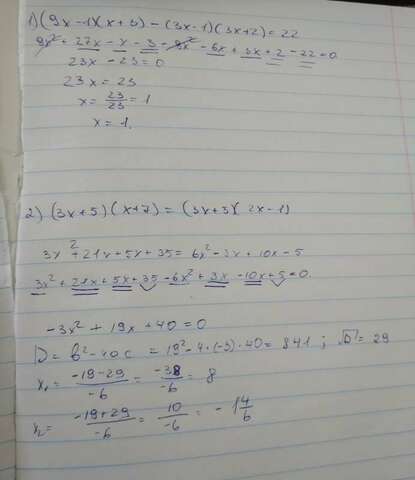 1) (9x-1)(x+3) - (3x-1)(3x+2) = 22
9x² + 27x - x - 3 - 9x² - 6x + 3x + 2 - 22 = 0
23x - 23 = 0
23x = 23
x = 23/23 = 1
x = 1.
2) (3x+5)(x+7) = (3x+5)(2x-1)
3x² + 21x + 5x + 35 = 6x² - 3x + 10x - 5
3x² + 21x + 5x + 35 - 6x² + 3x - 10x + 5 = 0.
-3x² + 19x + 40 = 0
D = b² - 4ac = 19² - 4·(-3)·40 = 841 ; √D = 29
x₁ = -19-29/-6 = -38/-6 = 8
x₂ = -19+29/-6 = 10/-6 = -1 4/6